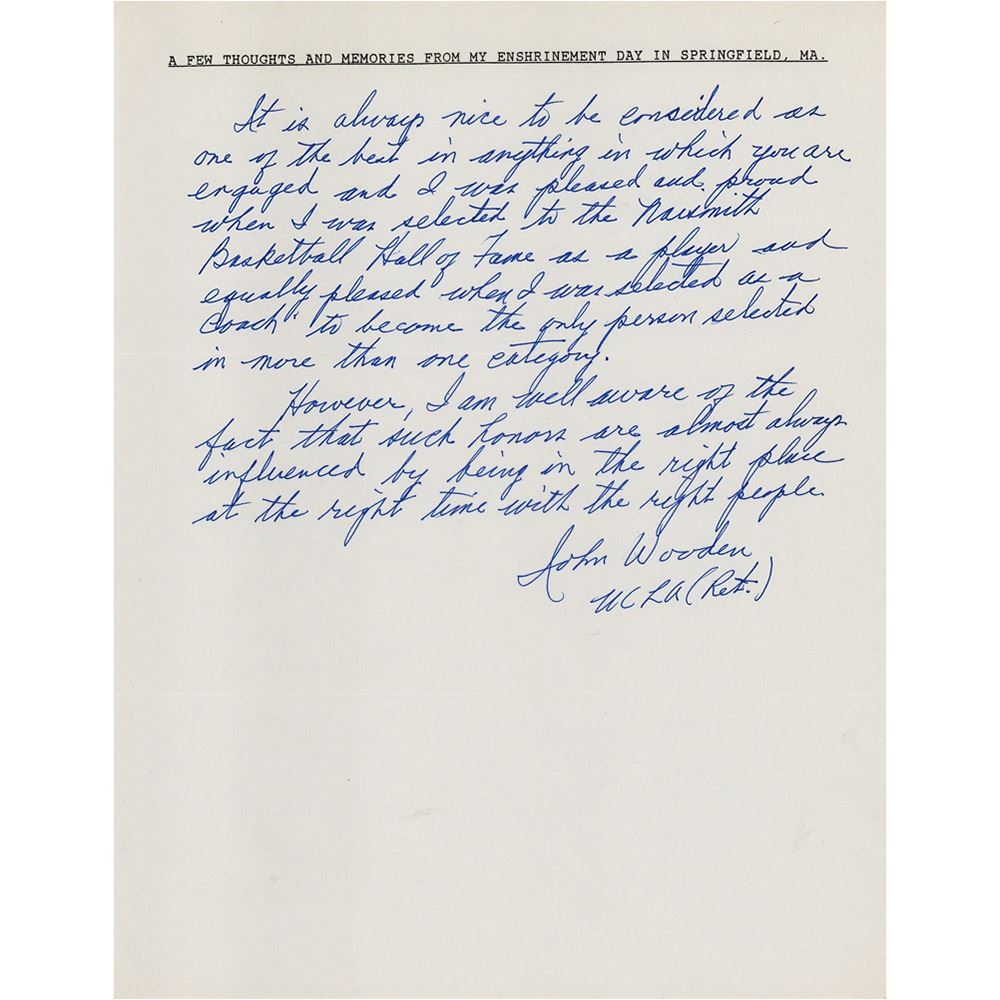 A FEW THOUGHTS AND MEMORIES FROM MY ENSHRINEMENT DAY IN SPRINGFIELD, MA.
It is always nice to be considered as
one of the best in anything in which you are
engaged and I was pleased and proud
when I was selected to the Naismith
Basketball Hall of Fame as a player and
equally pleased when I was selected as a
Coach" to become the only person selected
in more than one category.
However, I am well aware of the
fact that such honors are almost always
influenced by being in the right place
at the right time with the right people.
John Wooden
UCLA (Ret.)